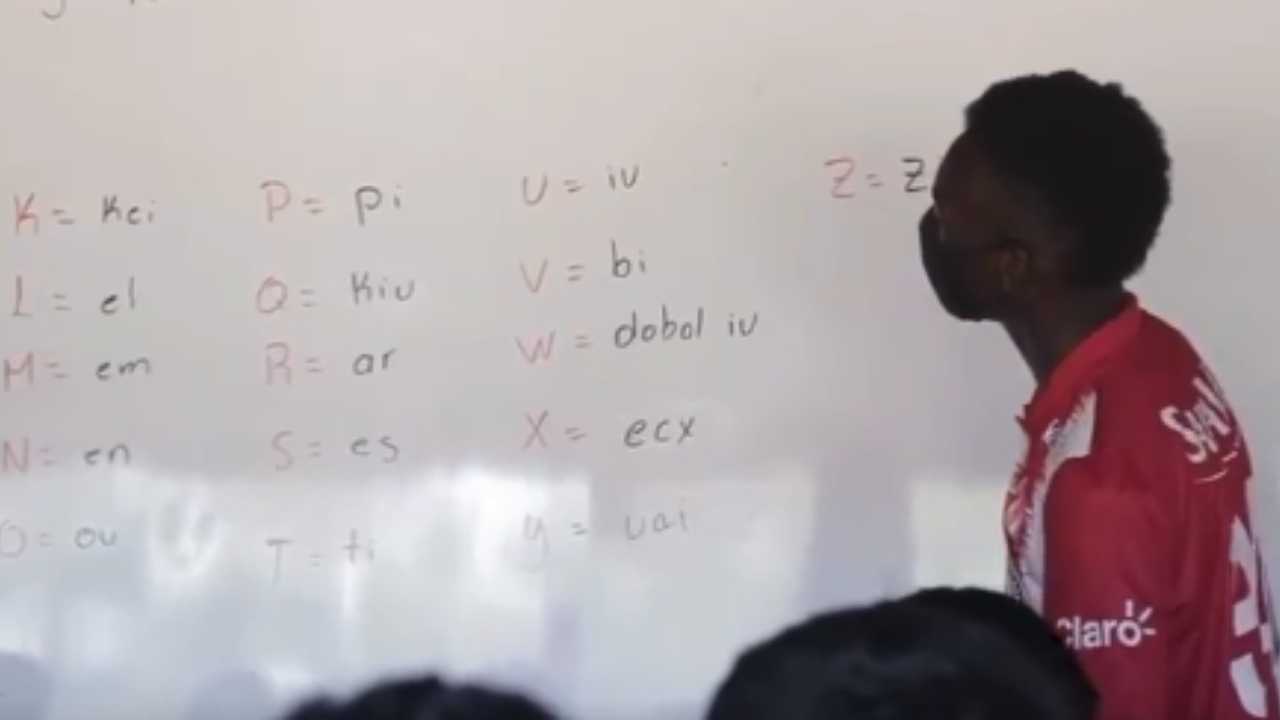 K = Kei
L = el
M = em
N = en
O = ou
P = pi
Q = Kiu
R = ar
S = es
T = ti
U = iu
V = bi
W = dobol iu
X = ecx
y = uai
Z = Z
Claro